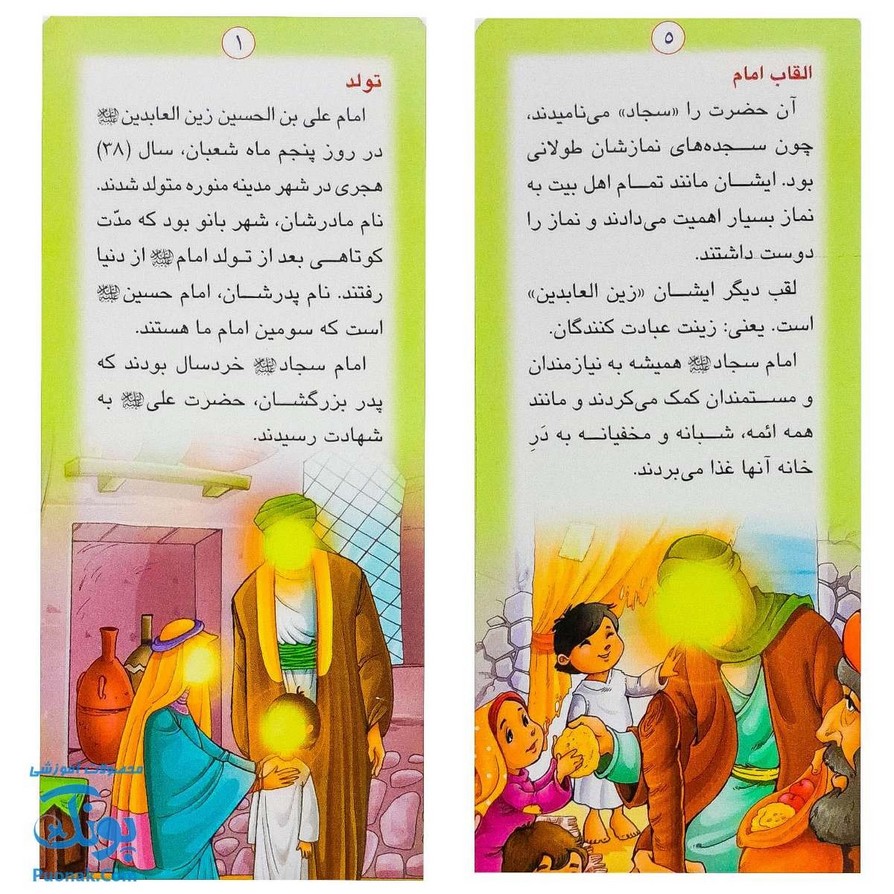 ۱
تولد
امام علی بن الحسین زین العابدین علیه‌السلام
در روز پنجم ماه شعبان، سال (۳۸)
هجری در شهر مدینه منوره متولد شدند.
نام مادرشان، شهر بانو بود که مدّت
کوتاهی بعد از تولد امام علیه‌السلام از دنیا
رفتند. نام پدرشان، امام حسین علیه‌السلام
است که سومین امام ما هستند.
امام سجاد علیه‌السلام خردسال بودند که
پدر بزرگشان، حضرت علی علیه‌السلام به
شهادت رسیدند.
۵
القاب امام
آن حضرت را «سجاد» می‌نامیدند،
چون سجده‌های نمازشان طولانی
بود. ایشان مانند تمام اهل بیت به
نماز بسیار اهمیت می‌دادند و نماز را
دوست داشتند.
لقب دیگر ایشان «زین العابدین»
است. یعنی: زینت عبادت کنندگان.
امام سجاد علیه‌السلام همیشه به نیازمندان
و مستمندان کمک می‌کردند و مانند
همه ائمه، شبانه و مخفیانه به دَرِ
خانه آنها غذا می‌بردند.
محصولات آموزشی
پونک
Poonak.Com